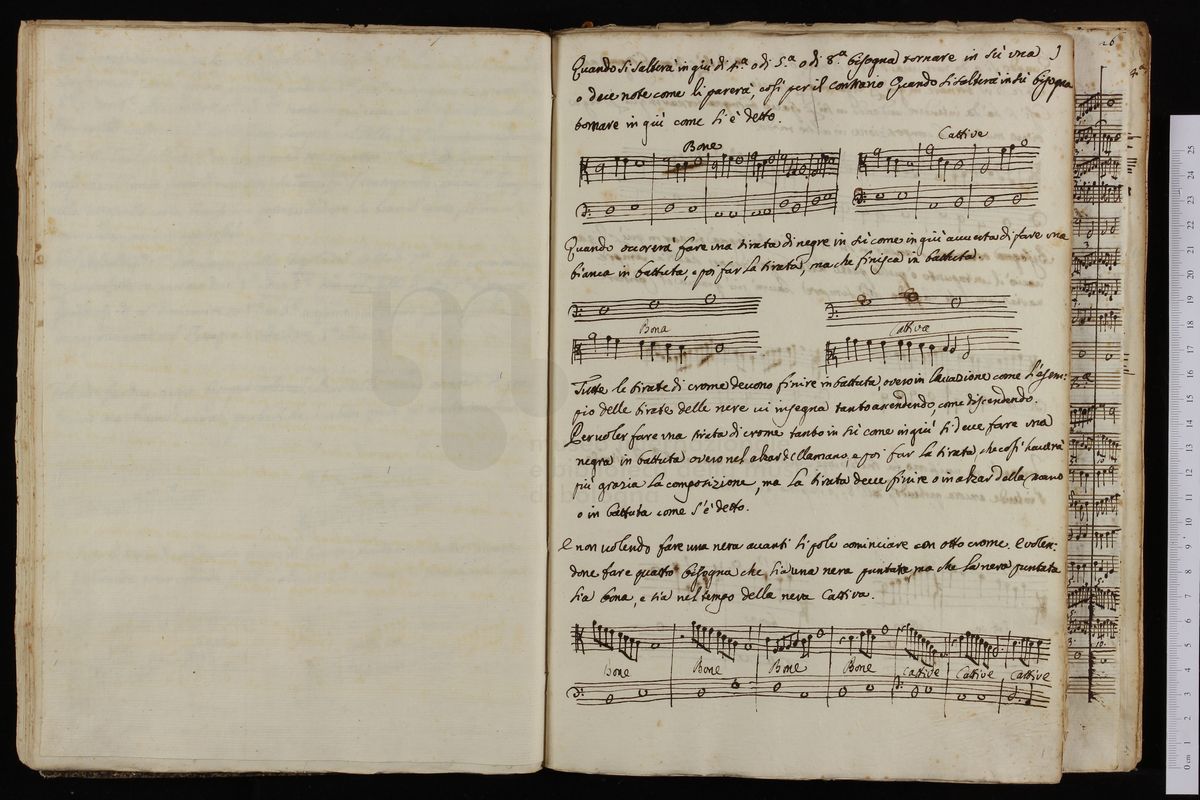 Quando si salterà in giù di 4.ª o di 5.ª o di 8.ª bisogna tornare in sù una
o dece note come li parerà, così per il contrario Quando si salterà in sù bisogna
tornare in giù come si è detto.
Bone
Cattive
Quando occorerà fare una tirata di negre in sù come in giù auuerta di fare una
bianca in battuta, e poi far la tirata, ma che finisca in battuta.
Bona
Cattiva
Tutte le tirate di crome deuono finire in battuta overo in leuazione come l'esem:
pio delle tirate delle nere ui insegna tanto ascendendo, come discendendo.
Per uoler fare una tirata di crome tanto in sù come in giù si deue fare una
negra in battuta overo nel alzar della mano, e poi far la tirata, che così hauerà
più grazia la composizione, ma la tirata deue finire o in alzar della mano
o in battuta come s'è detto.
E non uolendo fare una nera auanti si pole cominciare con otto crome. E uolen:
done fare quattro bisogna che sia una nera puntata ma che la nera puntata
sia bona, e sia nel tempo della nera Cattiva.
Bone Bone Bone Bone Cattive Cattive Cattive
26